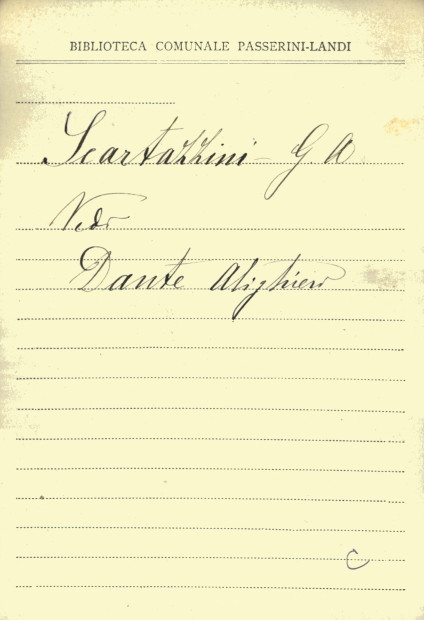 BIBLIOTECA COMUNALE PASSERINI-LANDI
Scartazzini - G. A
Vedi
Dante Alighieri
C